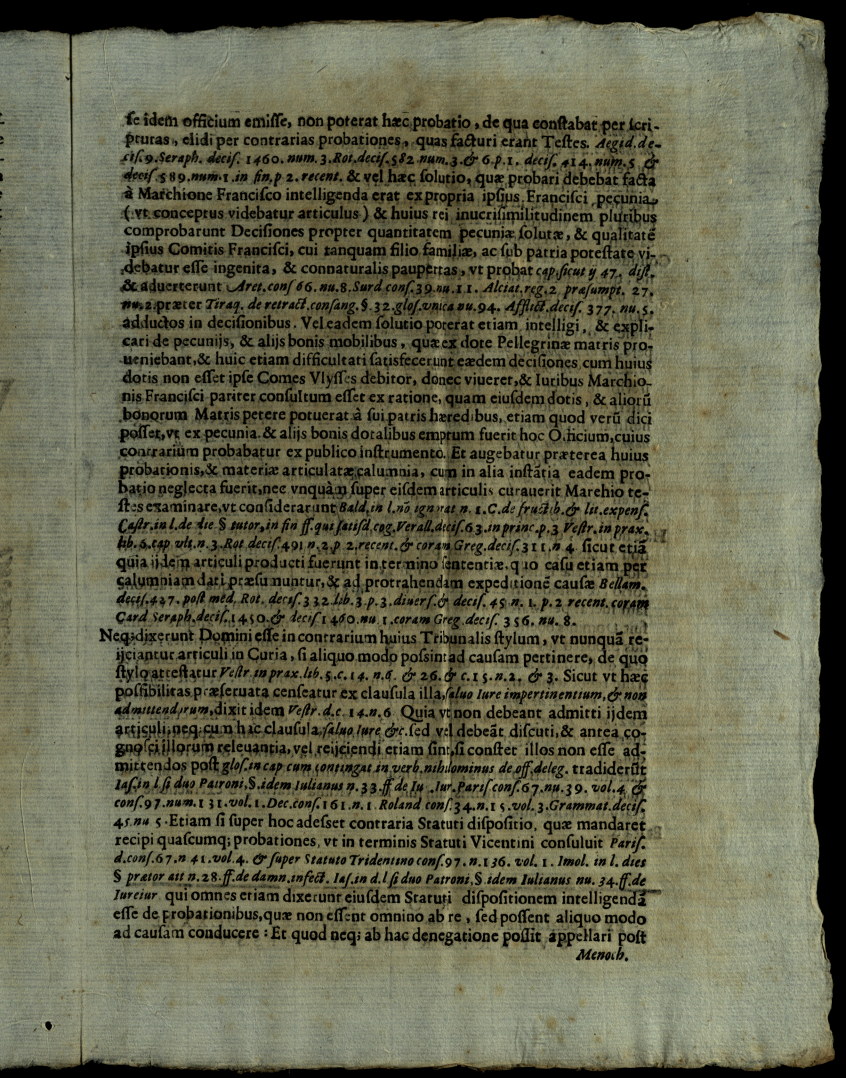 ſe idem officium emiſſe, non poterat hæc probatio, de qua conſtabat per ſcri-
pturas, elidi per contrarias probationes, quas facturi erant Teſtes. Aegid. de-
ciſ. 9. Seraph. deciſ. 1460. num. 3. Rot. deciſ. 582. num. 3. & 6. p. 1. deciſ. 414. num. 5 &
deciſ. 589. num. 1. in fin, p 2. recent. & vel hæc ſolutio, quæ probari debebat facta
à Marchione Franciſco intelligenda erat ex propria ipſius Franciſci pecunia,
( vt conceptus videbatur articulus ) & huius rei inueriſimilitudinem pluribus
comprobarunt Deciſiones propter quantitatem pecuniæ ſolutæ, & qualitatẽ
ipſius Comitis Franciſci, cui tanquam filio familiæ, ac ſub patria poteſtate vi-
debatur eſſe ingenita, & connaturalis paupertas, vt probat cap. ſicut ij 47. diſt.
& aduerterunt Aret. conſ 66. nu. 8. Surd conſ. 39. nu. 11. Alciat. reg. 2 præſumpt. 27.
nu. 2. præter Tiraq. de retract. conſang. §. 32. gloſ. vnica nu. 94. Afflict. deciſ. 377. nu. 5.
adductos in deciſionibus. Vel eadem ſolutio poterat etiam intelligi, & expli-
cari de pecunijs, & alijs bonis mobilibus, quæ ex dote Pellegrinæ matris pro-
ueniebant, & huic etiam difficultati ſatisfecerunt eædem deciſiones cum huius
dotis non eſſet ipſe Comes Vlyſſes debitor, donec viueret, & Iuribus Marchio-
nis Franciſci pariter conſultum eſſet ex ratione, quam eiuſdem dotis, & aliorũ
bonorum Matris petere potuerat à ſui patris hæredibus, etiam quod verũ dici
poſſet, vt ex pecunia & alijs bonis dotalibus emptum fuerit hoc Officium, cuius
contrarium probabatur ex publico inſtrumento. Et augebatur præterea huius
probationis, & materiæ articulatæ calumnia, cum in alia inſtãtia eadem pro-
batio neglecta fuerit, nec vnquàm ſuper eiſdem articulis curauerit Marchio te-
ſtes examinare, vt conſiderarunt Bald. in l. nõ ignorat n. 1. C. de fruct. lib. & lit. expenſ.
Caſtr. in l. de die. § tutor, in fin ff. qui ſatiſd. cog. Verall. deciſ. 63. in princ. p. 3 Veſtr. in prax.
lib. 6. cap vlt. n. 3. Rot deciſ. 491 n. 2. p 2. recent. & coram Greg. deciſ. 311. n 4 ſicut etiã
quia ijdem articuli producti fuerunt in termino ſententiæ. quo caſu etiam per
calumniam dati præſumuntur, & ad protrahendam expeditionẽ cauſæ Bellam.
deciſ. 427. poſt med. Rot. deciſ. 332. lib. 3. p. 3. diuerſ. & deciſ. 45 n. 1. p. 2 recent. coram
Card Seraph. deciſ. 1450. & deciſ 1460. nu. 1. coram Greg deciſ. 356. nu. 8.
Neq; dixerunt Domini eſſe in contrarium huius Tribunalis ſtylum, vt nunquã re-
ijciantur articuli in Curia, ſi aliquo modo poſsint ad cauſam pertinere, de quo
ſtylo atteſtatur Veſtr. in prax. lib. 5. c. 14. n. 6. & 26. & c. 15. n. 2. & 3. Sicut vt hæc
poſſibilitas præſeruata cenſeatur ex clauſula illa, ſaluo Iure impertinentium, & non
admittendorum, dixit idem Veſtr. d. c. 14. n. 6 Quia vt non debeant admitti ijdem
articuli, neq; cum hac clauſula, ſaluo Iure &c. ſed vel debeãt diſcuti, & antea co-
gnoſci illorum releuantia, vel reijciendi etiam ſint, ſi conſtet illos non eſſe ad-
mittendos poſt gloſ. in cap cum contingat in verb. nihilominus de off. deleg. tradiderũt
Iaſ. in l. ſi duo Patroni, §. idem Iulianus n. 33. ff. de Iu . Iur. Pariſ conſ. 67. nu. 39. vol. 4. &
conſ. 97. num. 131. vol. 1. Dec. conſ. 161. n. 1. Roland conſ. 34. n. 15. vol. 3. Grammat. deciſ.
45. nu 5. Etiam ſi ſuper hoc adeſset contraria Statuti diſpoſitio, quæ mandaret
recipi quaſcumq; probationes, vt in terminis Statuti Vicentini conſuluit Pariſ.
d. conſ. 67. n 41. vol. 4. & ſuper Statuto Tridentino conſ. 97. n. 136. vol. 1. Imol. in l. dies
§ prætor ait n. 28. ff. de damn. infect. Iaſ. in d. l ſi duo Patroni, §. idem Iulianus nu. 34. ff. de
Iureiur qui omnes etiam dixerunt eiuſdem Statuti diſpoſitionem intelligendã
eſſe de probationibus, quæ non eſſent omnino ab re, ſed poſſent aliquo modo
ad cauſam conducere : Et quod neq; ab hac denegatione poſſit appellari poſt
Menoch.